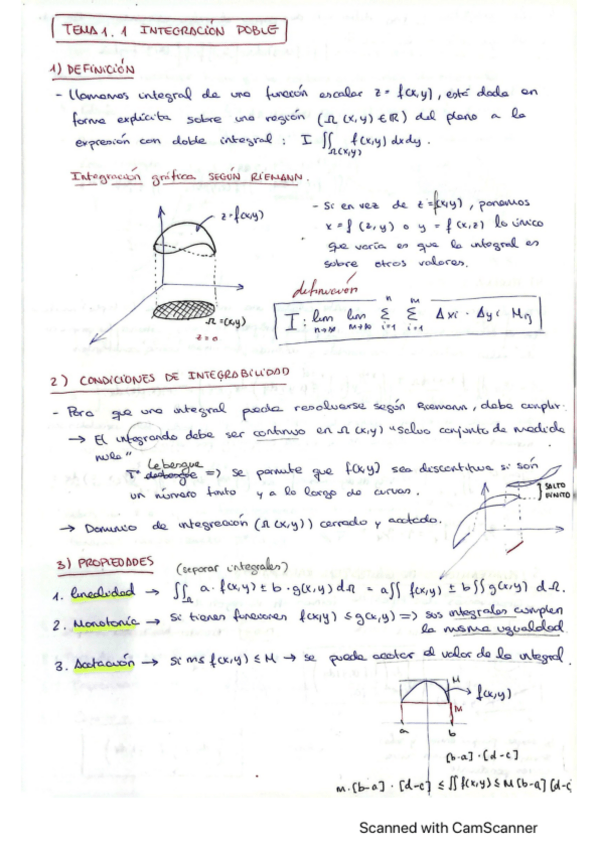 TEMA 1.1 INTEGRACIÓN DOBLE
1) DEFINICIÓN
- Llamamos integral de una función escalar z = f(x,y), está dada en
forma explícita sobre una región (Ω (x,y) ∈ ℝ) del plano a la
expresión con doble integral: I ∬Ω(x,y) f(x,y) dx dy.
Integración gráfica SEGÚN RIEMANN.
z = f(x,y)
Ω = (x,y)
z = 0
- Si en vez de z = f(x,y), ponemos
x = f (z,y) o y = f (x,z) lo único
que varía es que la integral es
sobre otros valores.
definición
I : lim n→∞ lim m→∞ Σ i=1 n Σ i=1 m Δxi · Δyi · Mij
2) CONDICIONES DE INTEGRABILIDAD
- Para que una integral pueda resolverse según Riemann, debe cumplir:
→ El integrando debe ser continuo en Ω (x,y) "salvo conjunto de medida
nula"
Tª Lebesgue => se permite que f(x,y) sea discontinua si son
un número finito y a lo largo de curvas.
SALTO
FINITO
→ Dominio de integración (Ω(x,y)) cerrado y acotado.
3) PROPIEDADES (separar integrales)
1. linealidad → ∬Ω a · f(x,y) ± b · g(x,y) dΩ = a∬ f(x,y) ± b∬ g(x,y) dΩ.
2. Monotonía → Si tienes funciones f(x,y) ≤ g(x,y) => sus integrales cumplen
la misma igualdad.
3. Acotación → Si m ≤ f(x,y) ≤ M → se puede acotar el valor de la integral.
M
f(x,y)
M
a b
[b-a] · [d-c]
m · [b-a] · [d-c] ≤ ∬ f(x,y) ≤ M [b-a] [d-c
Scanned with CamScanner